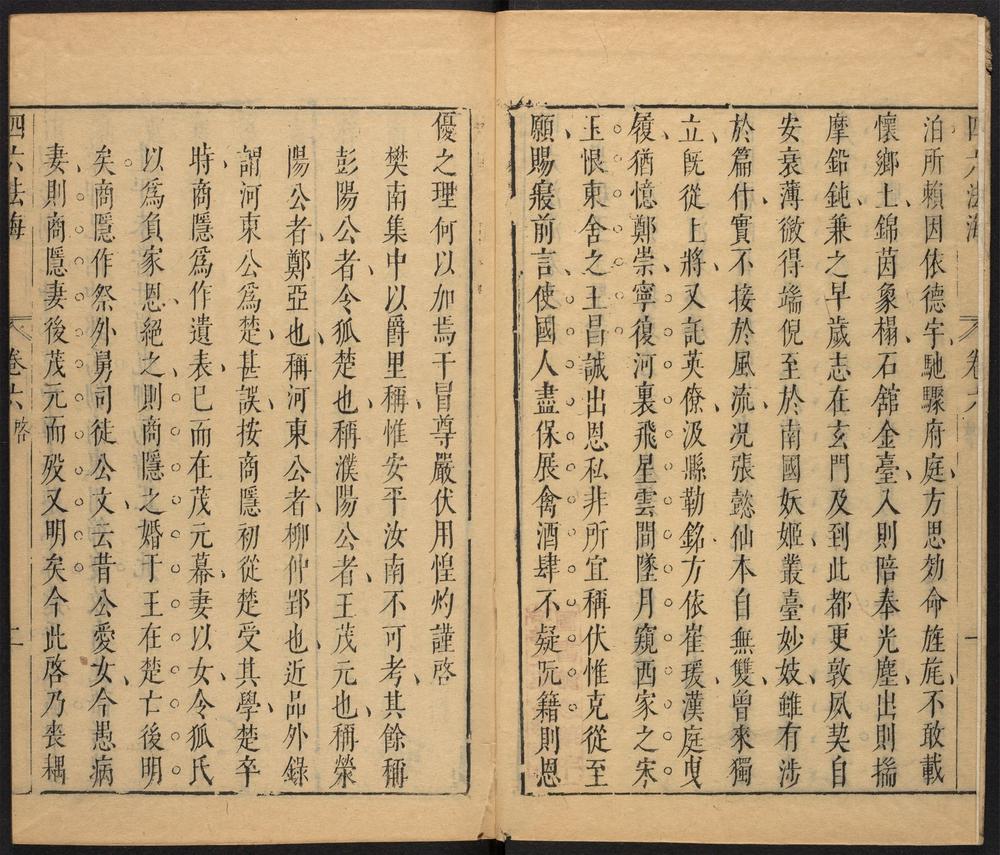 四六法海
卷六
一
泊所賴因依德宇馳驟府庭方思効命旌旄不敢載
懷鄉土錦茵象榻石舘金臺入則陪奉光塵出則揣
摩鉛鈍兼之早歲志在玄門及到此都更敦夙契自
安衰薄微得端倪至於南國妖姬叢臺妙妓雖有涉
於篇什實不接於風流况張懿仙本自無雙曾來獨
立旣從上將又託英僚汲縣勒銘方依崔瑗漢庭曳
履猶憶鄭崇寧復河裏飛星雲間墜月窺西家之宋
玉恨東舍之王昌誠出恩私非所宜稱伏惟克從至
願賜寢前言使國人盡保展禽酒肆不疑阮籍則恩
優之理何以加焉干冒尊嚴伏用惶灼謹啓
樊南集中以爵里稱惟安平汝南不可考其餘稱
彭陽公者令狐楚也稱濮陽公者王茂元也稱滎
陽公者鄭亞也稱河東公者柳仲郢也近品外錄
謂河東公爲楚甚誤按商隱初從楚受其學楚卒
時商隱爲作遺表已而在茂元幕妻以女令狐氏
以爲負家恩絕之則商隱之婚于王在楚亡後明
矣商隱作祭外舅司徒公文云昔公愛女今愚病
妻則商隱妻後茂元而殁又明矣今此啓乃喪耦
四六法海
卷六
啓
二